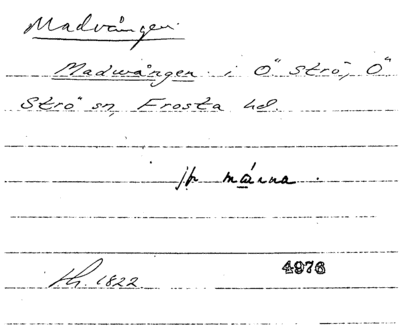 Madvången.
Madwången i Ö Strö, Ö
Strö sn, Frosta hd.
jfr mánna.
Kh. 1822 4976